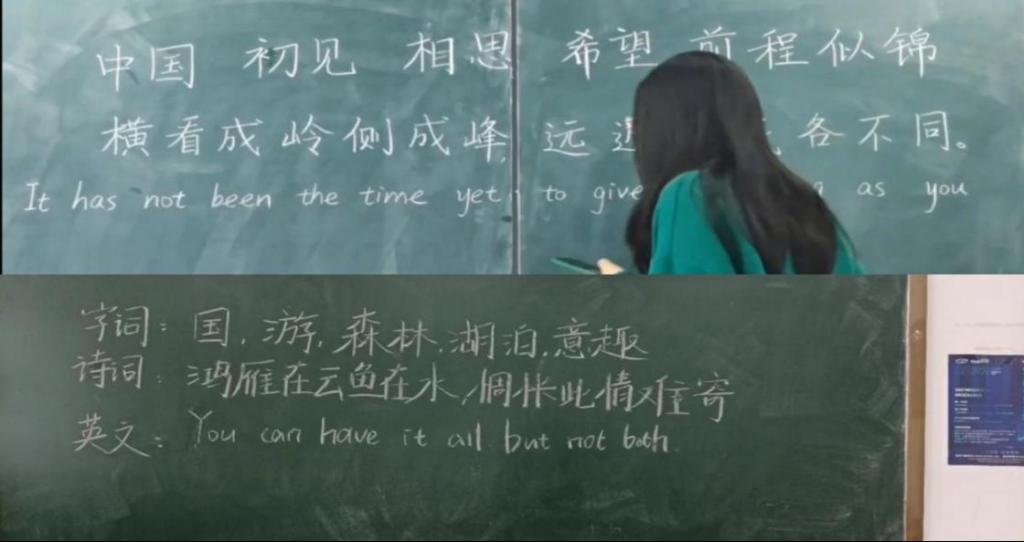 中国 初见 相思 希望 前程似锦
横看成岭侧成峰, 远 各不同。
It has not been the time yet, to give as you
字词: 国, 游, 森林, 湖泊, 意趣
诗词: 鸿雁在云鱼在水, 惆怅此情难寄
英文: You can have it all but not both.